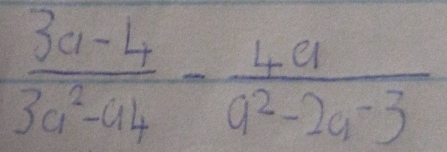 3a-4/3a²-a4 - 4a/a²-2a-3